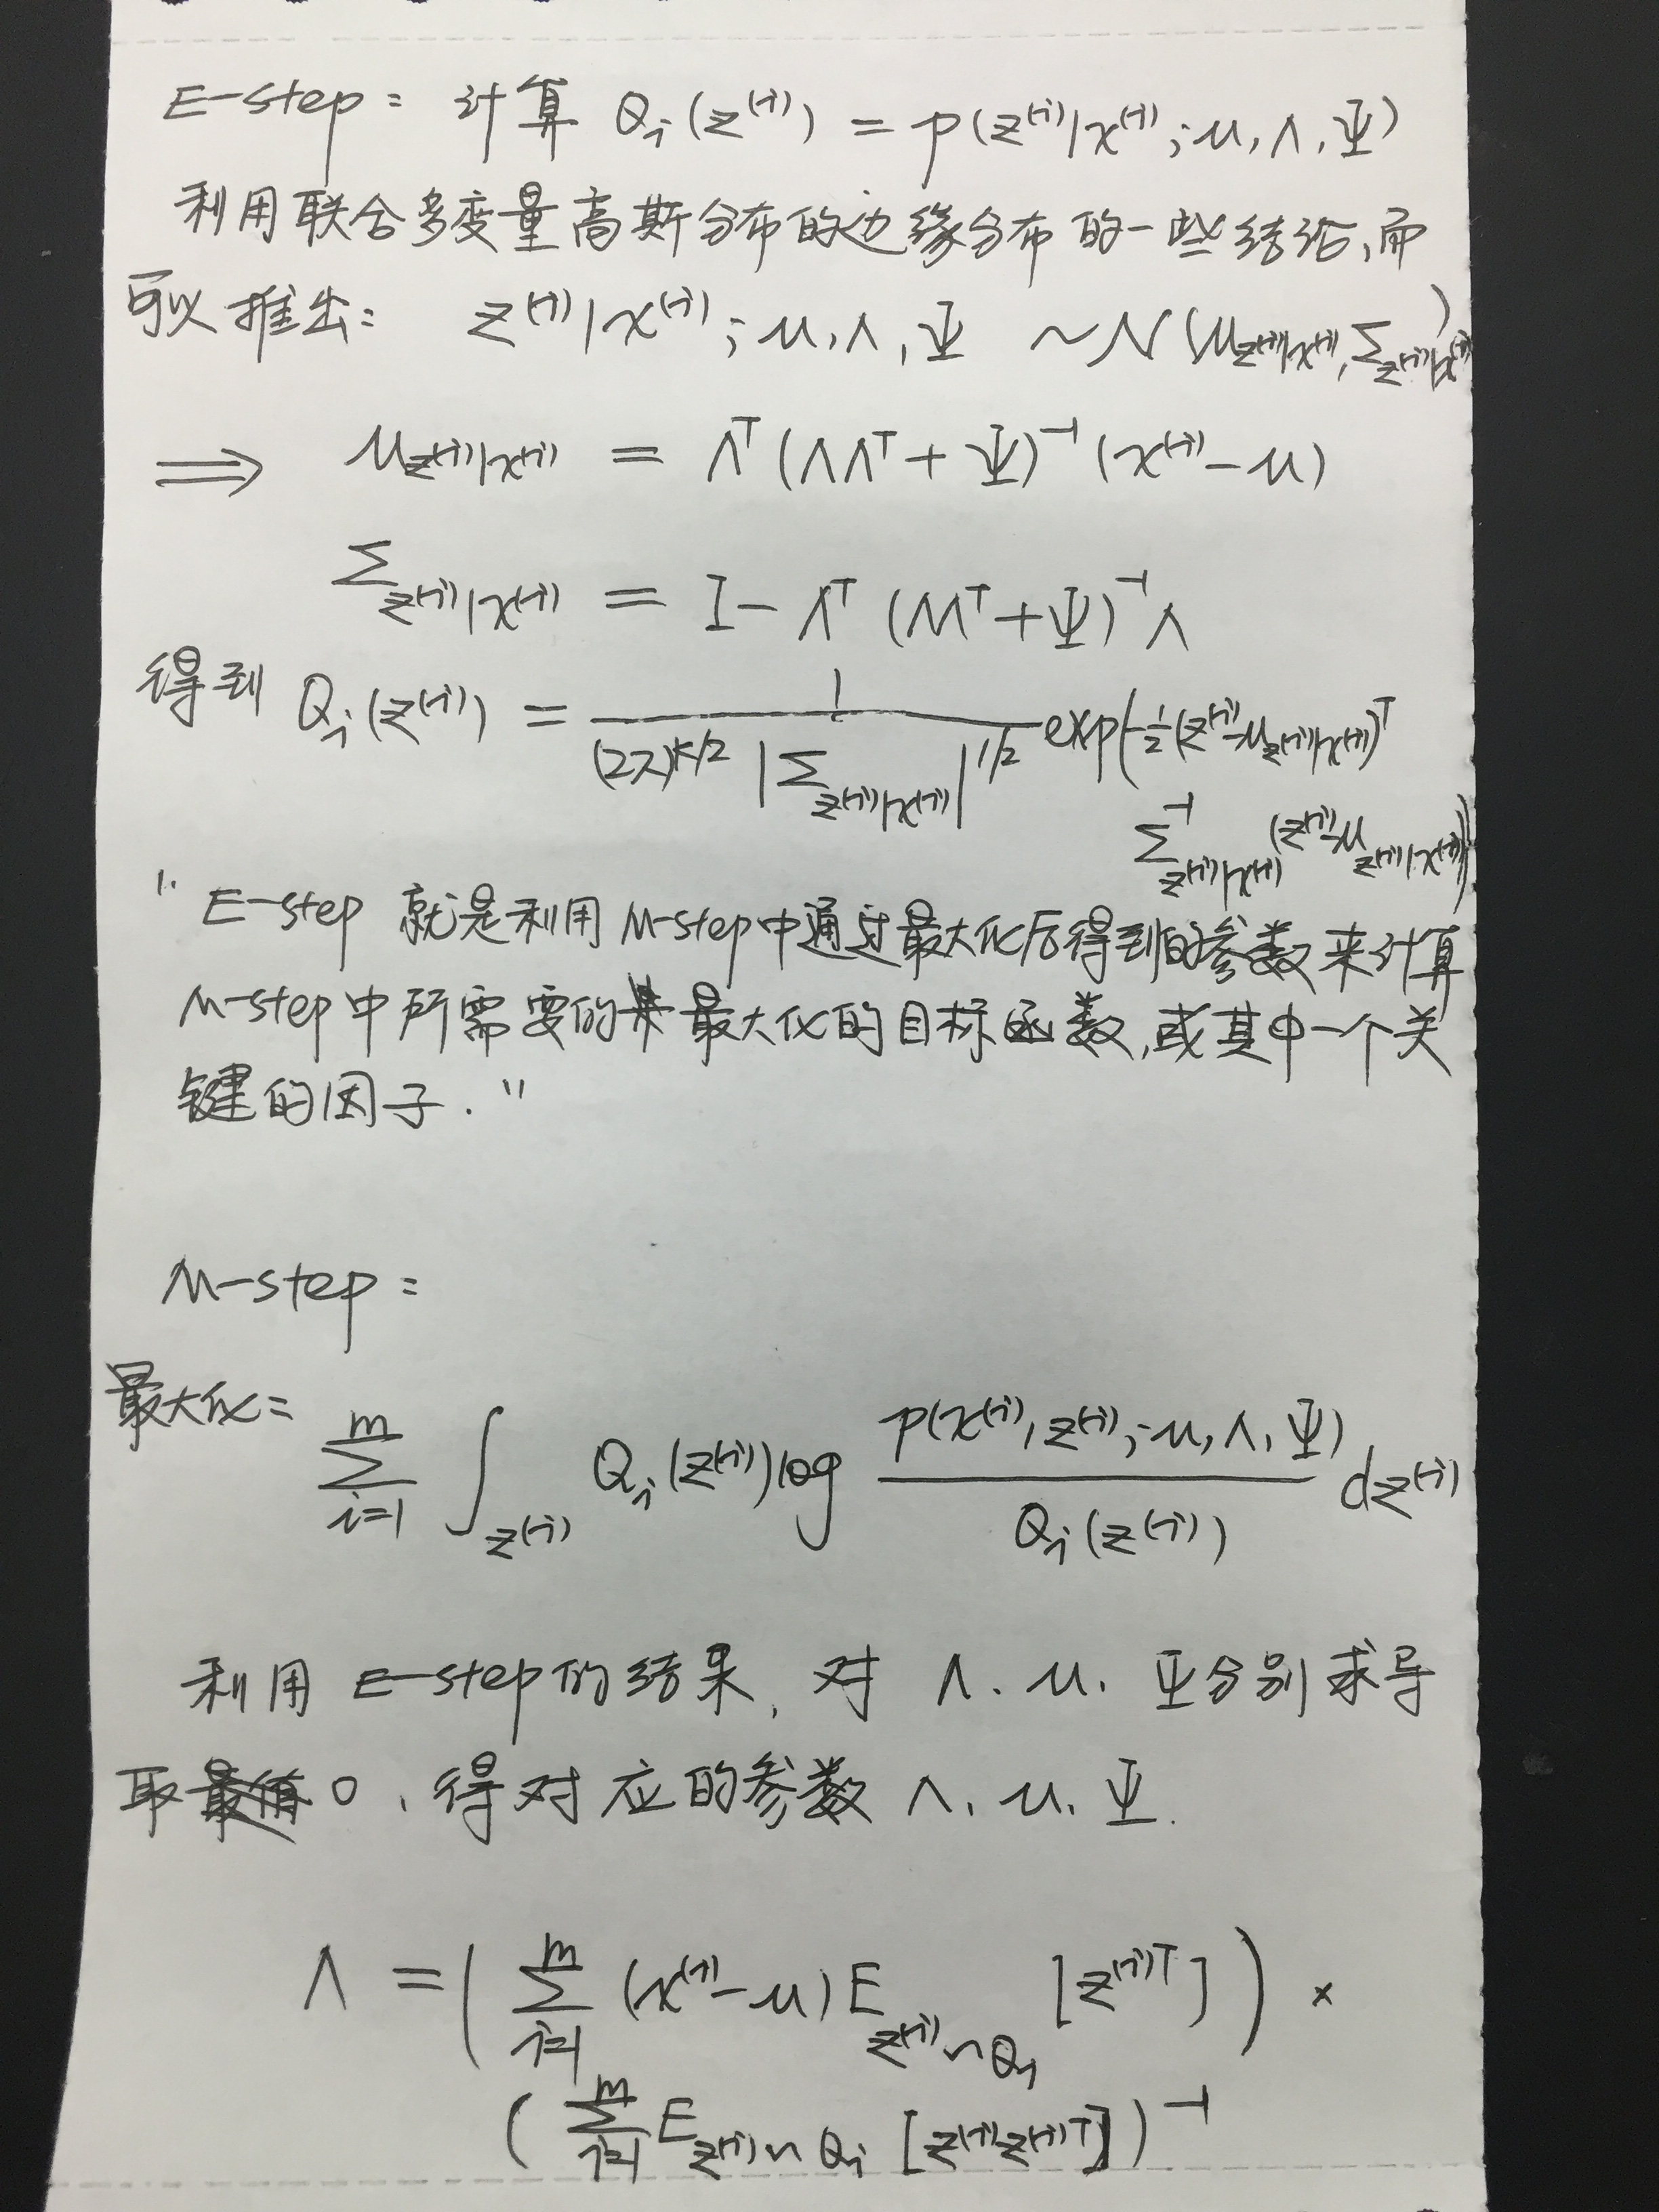 E-step: 计算 Qᵢ(z⁽ⁱ⁾) = p(z⁽ⁱ⁾|x⁽ⁱ⁾; μ, Λ, Ψ)
利用联合多变量高斯分布的边缘分布的一些结论,而
可以推出: z⁽ⁱ⁾|x⁽ⁱ⁾; μ, Λ, Ψ ~ N(μ_{z⁽ⁱ⁾|x⁽ⁱ⁾}, Σ_{z⁽ⁱ⁾|x⁽ⁱ⁾})
⟹ μ_{z⁽ⁱ⁾|x⁽ⁱ⁾} = Λᵀ(ΛΛᵀ + Ψ)⁻¹(x⁽ⁱ⁾ - μ)
Σ_{z⁽ⁱ⁾|x⁽ⁱ⁾} = I - Λᵀ(ΛΛᵀ + Ψ)⁻¹Λ
得到 Qᵢ(z⁽ⁱ⁾) = \frac{1}{(2π)^{k/2} |Σ_{z⁽ⁱ⁾|x⁽ⁱ⁾}|^{1/2}} exp(-\frac{1}{2}(z⁽ⁱ⁾ - μ_{z⁽ⁱ⁾|x⁽ⁱ⁾})ᵀ
Σ⁻¹_{z⁽ⁱ⁾|x⁽ⁱ⁾} (z⁽ⁱ⁾ - μ_{z⁽ⁱ⁾|x⁽ⁱ⁾}))
"E-step 就是利用 M-step中通过最大化后得到的参数来计算
M-step中所需要的最大化的目标函数,或其中一个关
键的因子."
M-step:
最大化: \sum_{i=1}^{m} \int_{z⁽ⁱ⁾} Qᵢ(z⁽ⁱ⁾) log \frac{p(x⁽ⁱ⁾, z⁽ⁱ⁾; μ, Λ, Ψ)}{Qᵢ(z⁽ⁱ⁾)} dz⁽ⁱ⁾
利用 E-step的结果, 对 Λ. μ. Ψ分别求导
取0, 得对应的参数 Λ. μ. Ψ.
Λ = ( \sum_{i=1}^{m} (x⁽ⁱ⁾ - μ) E_{z⁽ⁱ⁾~Qᵢ} [z⁽ⁱ⁾ᵀ] ) ×
( \sum_{i=1}^{m} E_{z⁽ⁱ⁾~Qᵢ} [z⁽ⁱ⁾z⁽ⁱ⁾ᵀ] )⁻¹